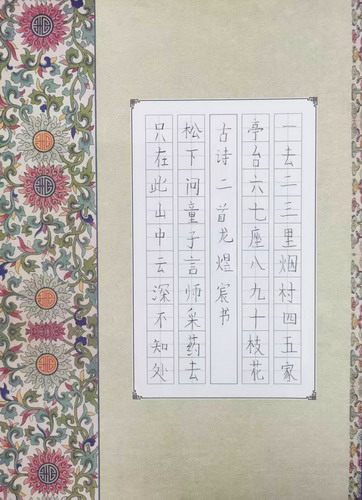 一去二三里烟村四五家
亭台六七座八九十枝花
古诗二首龙煜宸书
松下问童子言师采药去
只在此山中云深不知处